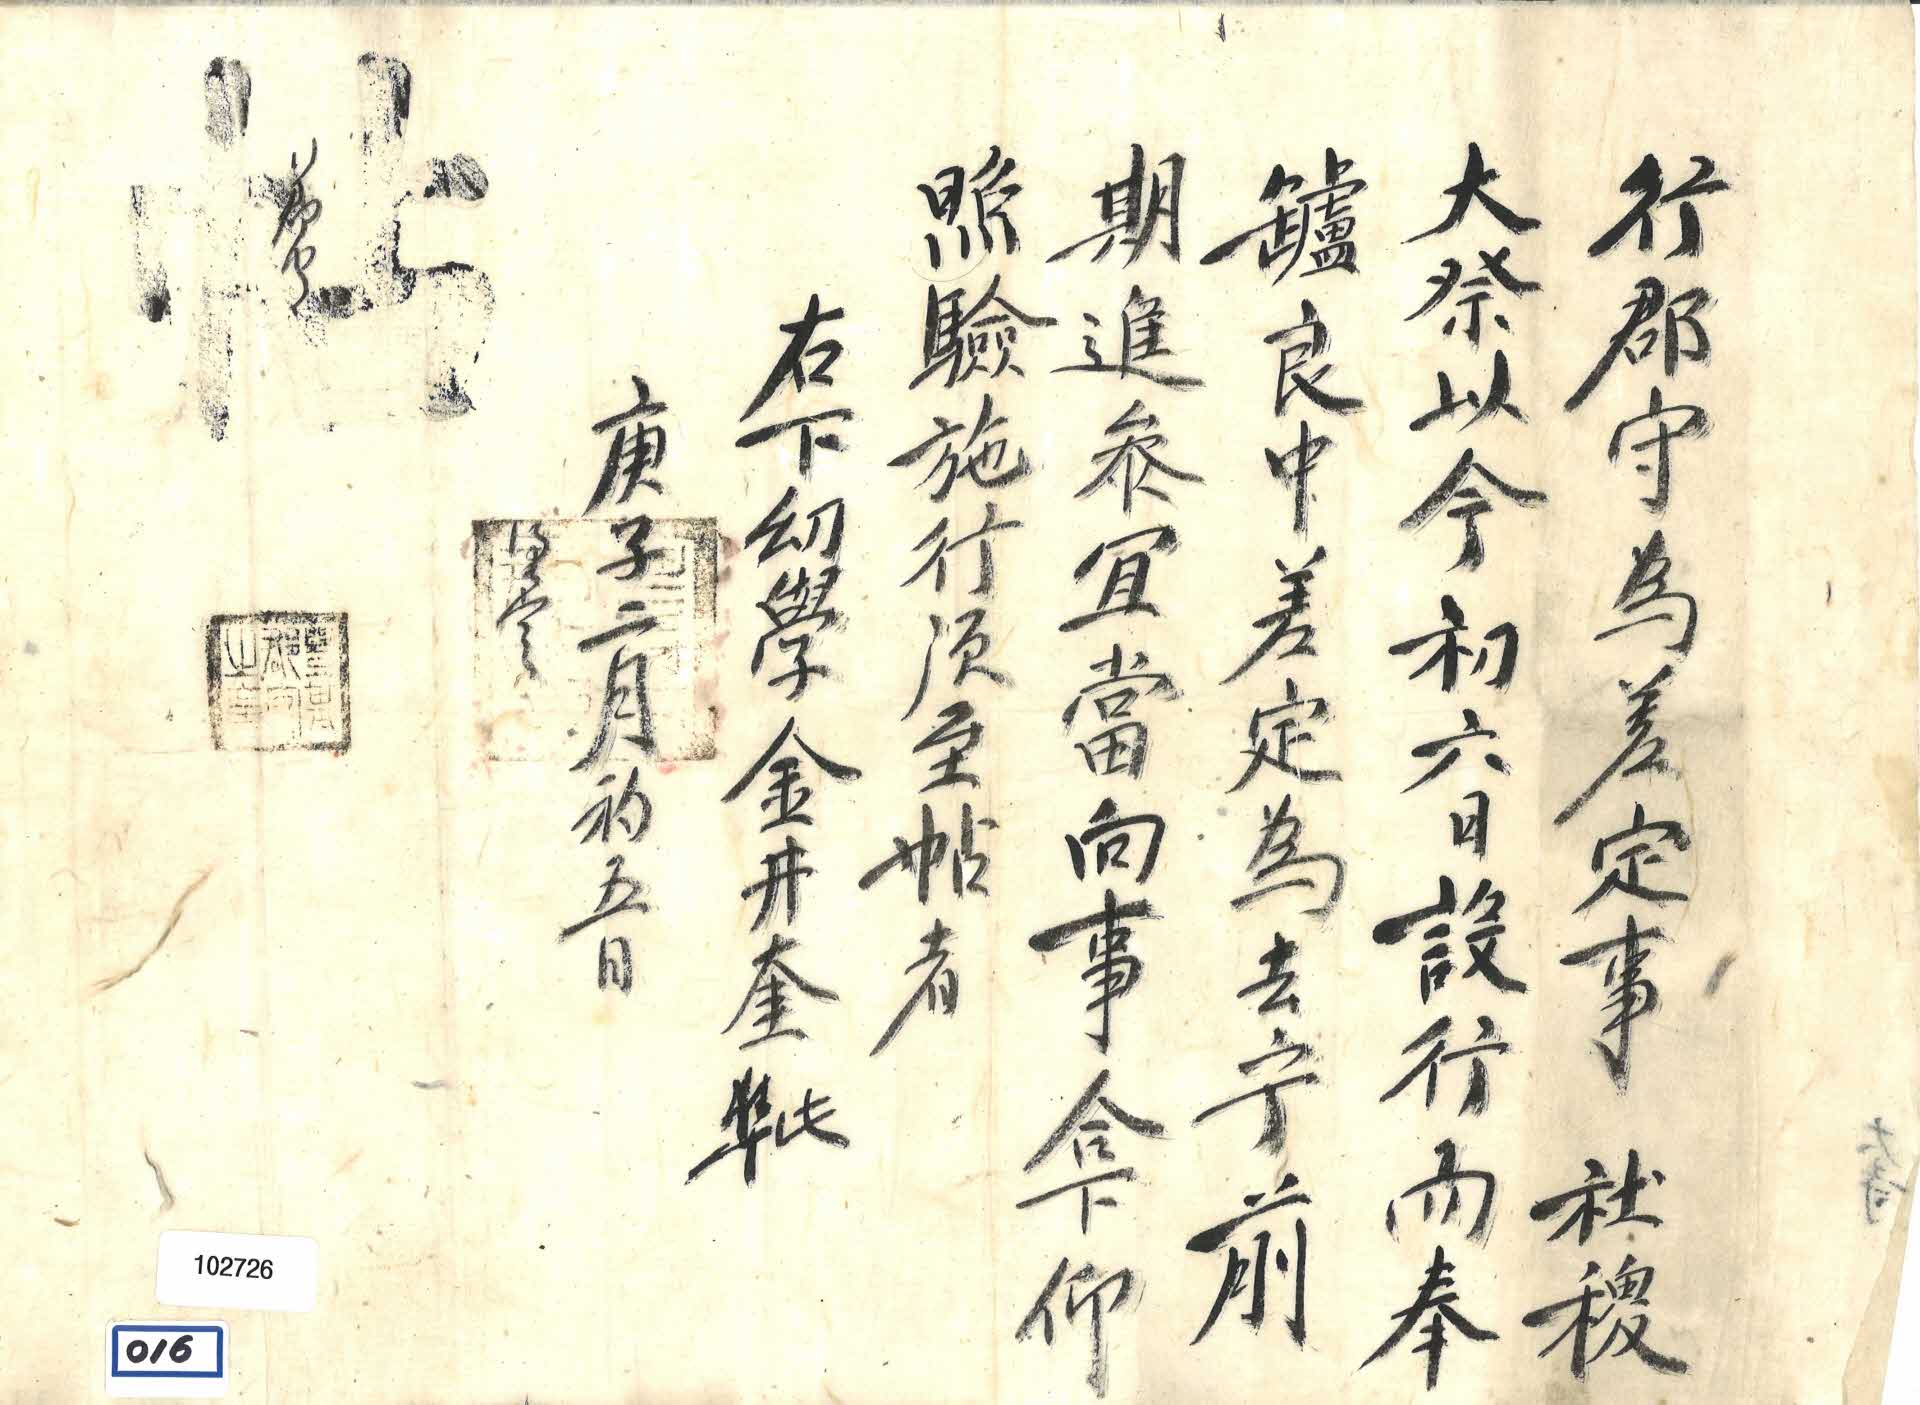 行郡守為差定事 社稷
大祭以今初六日設行而奉
罏良中差定為去乎前
期進參宜當向事合下仰
照驗施行須至帖者
右下幼學金井奎 準此
庚子二月初五日
帖
102726
016